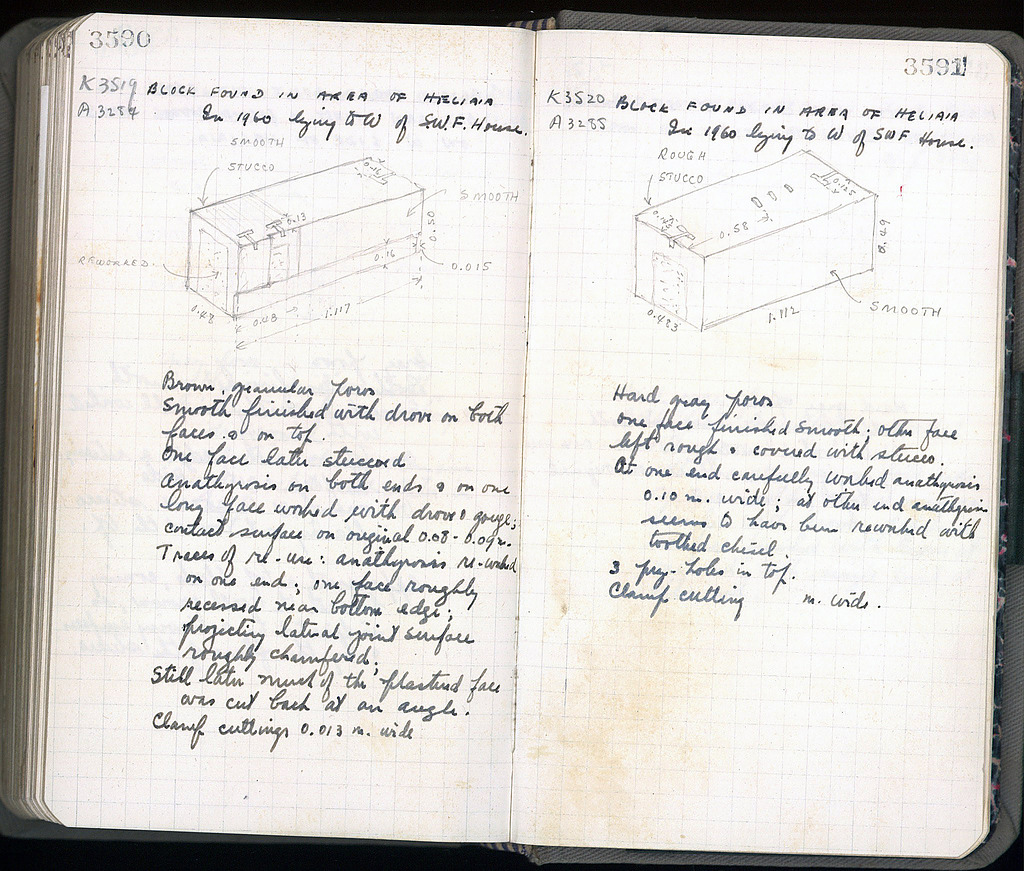 3590
K3519 BLOCK FOUND IN AREA OF HELIAIA
A3284 In 1960 lying to W of S.W.F. House.
SMOOTH
STUCCO
0.16
SMOOTH
0.13
0.50
REWORKED
0.16
0.015
0.48
0.48
1.117
Brown, granular poros
Smooth finished with drove on both
faces & on top.
One face later stuccoed
Anathyrosis on both ends & on one
long face worked with drove & gouge;
contact surface on original 0.08-0.09 m.
Traces of re-use: anathyrosis re-worked
on one end; one face roughly
recessed near bottom edge;
projecting lateral joint surface
roughly chamfered;
Still later much of the plastered face
was cut back at an angle.
Clamp cuttings 0.013 m. wide
3591
K3520 BLOCK FOUND IN AREA OF HELIAIA
A3285 In 1960 lying to W of SWF House.
ROUGH
STUCCO
0.125
0.58
0.49
SMOOTH
0.483
1.112
Hard gray poros
One face finished smooth; other face
left rough & covered with stucco.
At one end carefully worked anathyrosis
0.10 m. wide; at other end anathyrosis
seems to have been reworked with
toothed chisel.
3 pry-holes in top.
Clamp cutting m. wide.